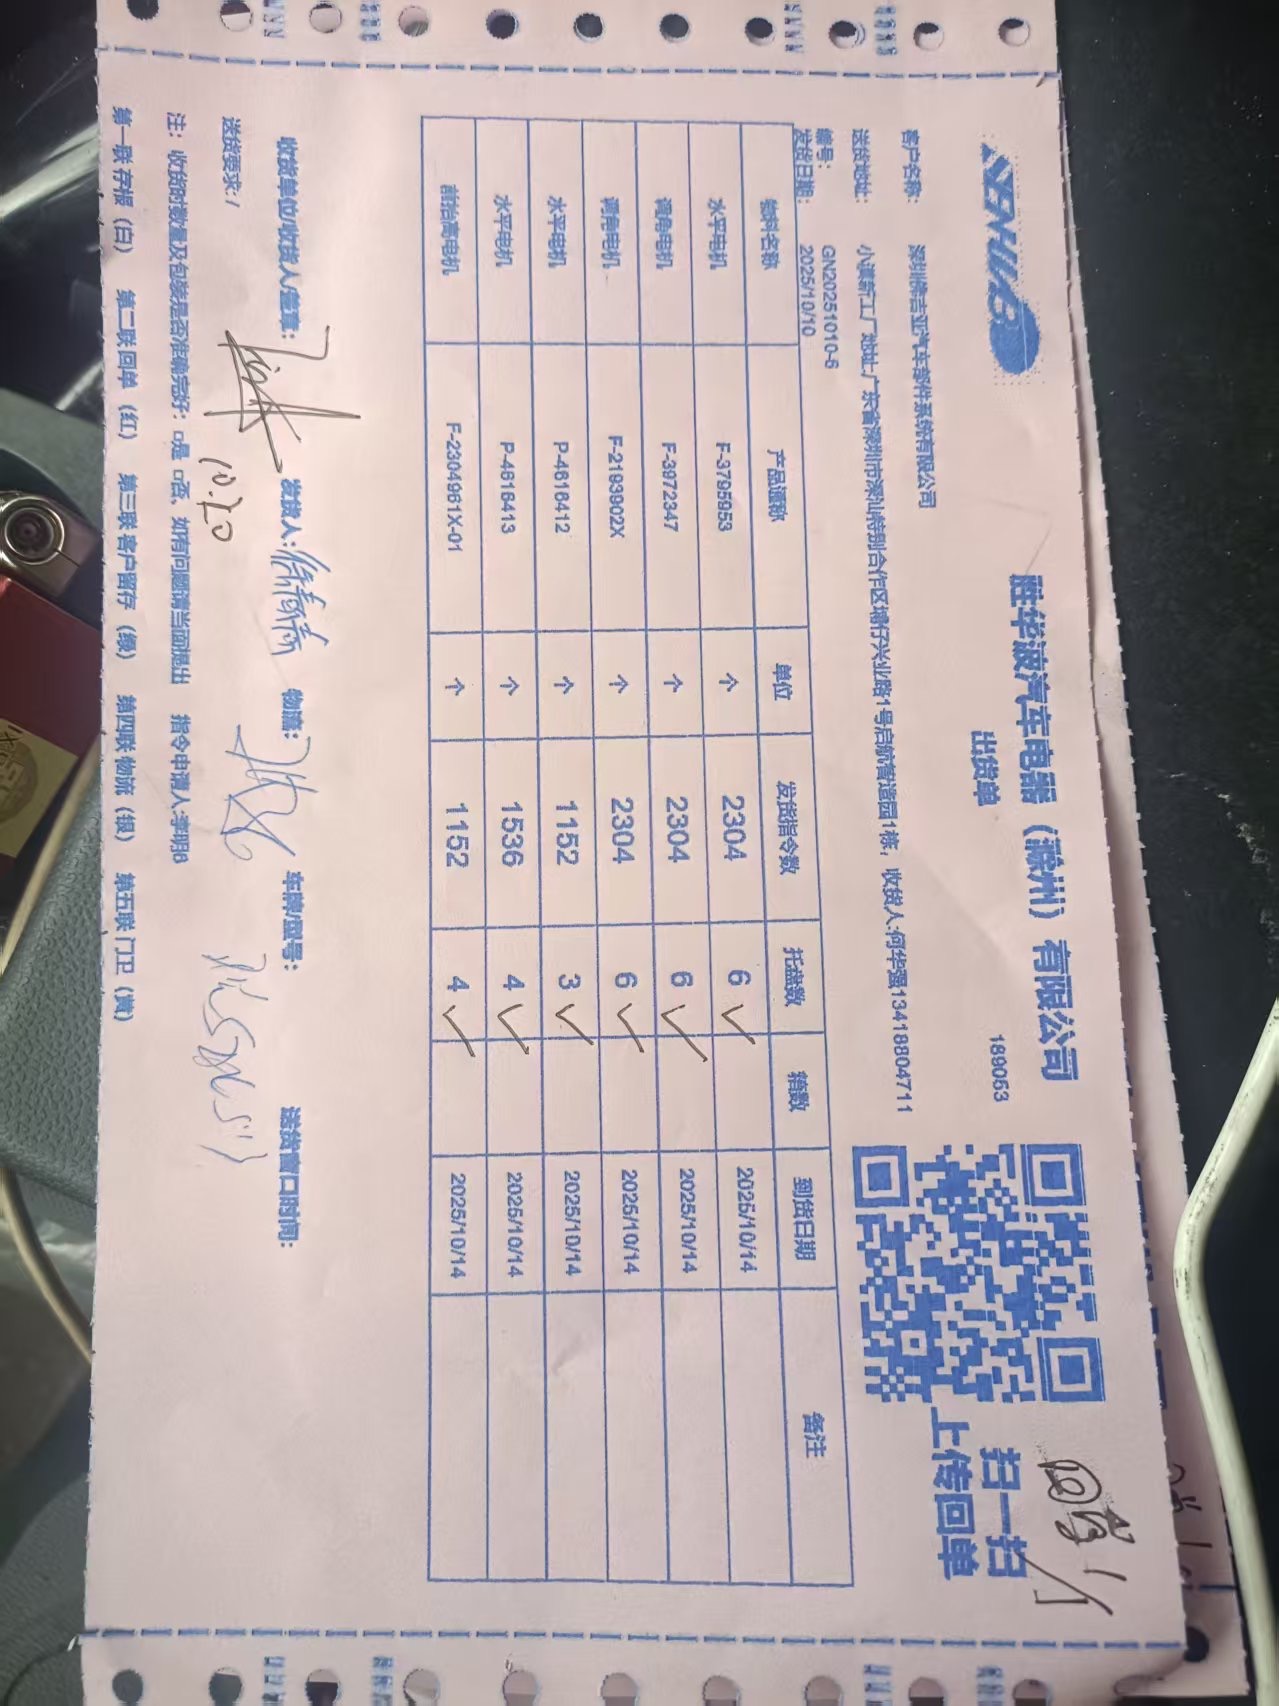 胜华波汽车电器（滁州）有限公司
出货单
189053
扫一扫
上传回单
客户名称：
送货地址： 小漠新工厂 地址:广东省深圳市深汕特别合作区 1号 1栋，收货人:何华强13418804711
编号： GN20251010-6
发货日期： 2025/10/10
物料名称 产品通称 单位 发货指令数 托盘数 箱数 到货日期 备注
水平电机 F-3795953 个 2304 6 2025/10/14
调角电机 F-3972347 个 2304 6 2025/10/14
调角电机 F-2193902X 个 2304 6 2025/10/14
水平电机 P-4616412 个 1152 3 2025/10/14
水平电机 P-4616413 个 1536 4 2025/10/14
前抬高电机 F-2304961X-01 个 1152 4 2025/10/14
收货单位/收货人/签章： 发货人： 物流： 车牌/型号： 送货窗口时间：
10.20
送货要求:/
注：收货时数量及包装是否准确完好：□是 □否、如有问题请当面提出 指令申请人:李明6
第一联 存根（白） 第二联 回单（红） 第三联 客户留存（绿） 第四联 物流（银） 第五联 门卫（黄）